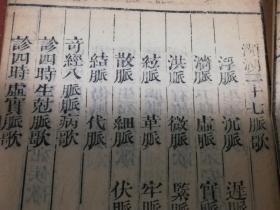 瀕湖二十七脈歌
浮脈 沉脈 遲
濇脈 虛脈 實脈
洪脈 微脈 緊脈
絃脈 革脈 牢脈
散脈 細脈 伏脈
結脈 代脈
奇經八脈脈病歌
診四時生尅脈歌
診四時虛實脈歌